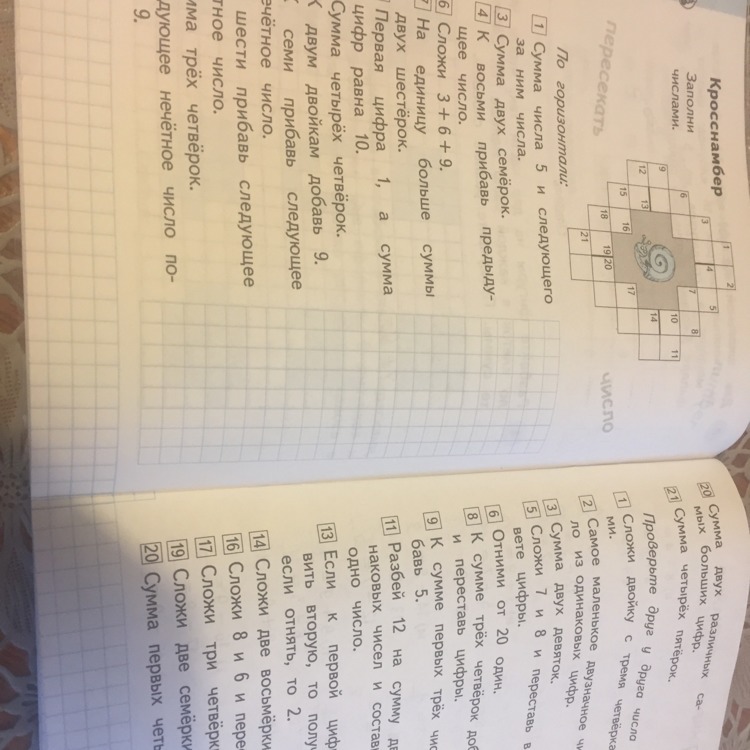 Кросснамбер
Заполни
числами.
1
2
3
4
5
6
7
8
9
10
11
12
13
14
15
16
17
18
19
20
21
пересекать
число
По горизонтали:
1 Сумма числа 5 и следующего
за ним числа.
3 Сумма двух семёрок.
4 К восьми прибавь предыду-
щее число.
6 Сложи 3 + 6 + 9.
7 На единицу больше суммы
двух шестёрок.
Первая цифра 1, а сумма
цифр равна 10.
Сумма четырёх четвёрок.
К двум двойкам добавь 9.
К семи прибавь следующее
чётное число.
шести прибавь следующее
тное число.
мма трёх четвёрок.
дующее нечётное число по-
9.
20 Сумма двух различных са-
мых больших цифр.
21 Сумма четырёх пятёрок.
Проверьте друг у друга числа
1 Сложи двойку с тремя четвёрка
ми.
2 Самое маленькое двузначное чи
ло из одинаковых цифр.
3 Сумма двух девяток.
5 Сложи 7 и 8 и переставь в
вете цифры.
6 Отними от 20 один.
8 К сумме трёх четвёрок доб
и переставь цифры.
9 К сумме первых трёх чис
бавь 5.
11 Разбей 12 на сумму дв
наковых чисел и состави
одно число.
13 Если к первой цифр
вить вторую, то получ
если отнять, то 2.
14 Сложи две восьмёрки
16 Сложи 8 и 6 и пере
17 Сложи три четвёрк
19 Сложи две семёрки
20 Сумма первых четы